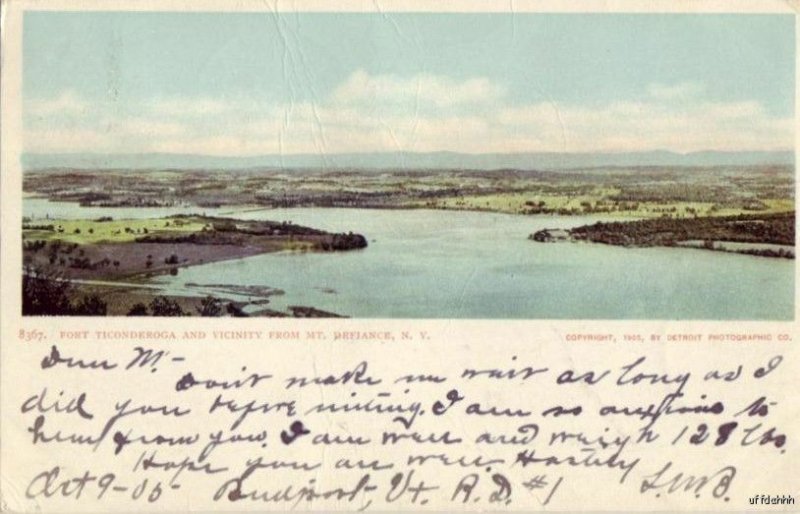 8367. FORT TICONDEROGA AND VICINITY FROM MT. DEFIANCE, N. Y. COPYRIGHT, 1905, BY DETROIT PHOTOGRAPHIC CO.
Dear M.-
Don't make me wait as long as I
did you before writing. I am so anxious to
hear from you. I am well and weigh 128 lbs.
Hope you are well. Hastily
Oct 9-05- Bridport, Vt. R.D. #1 L.M.B.
uffdahhh